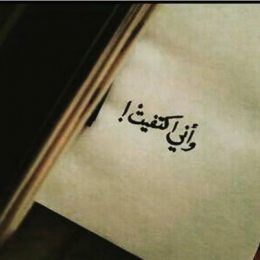 وأني اكتفيت!